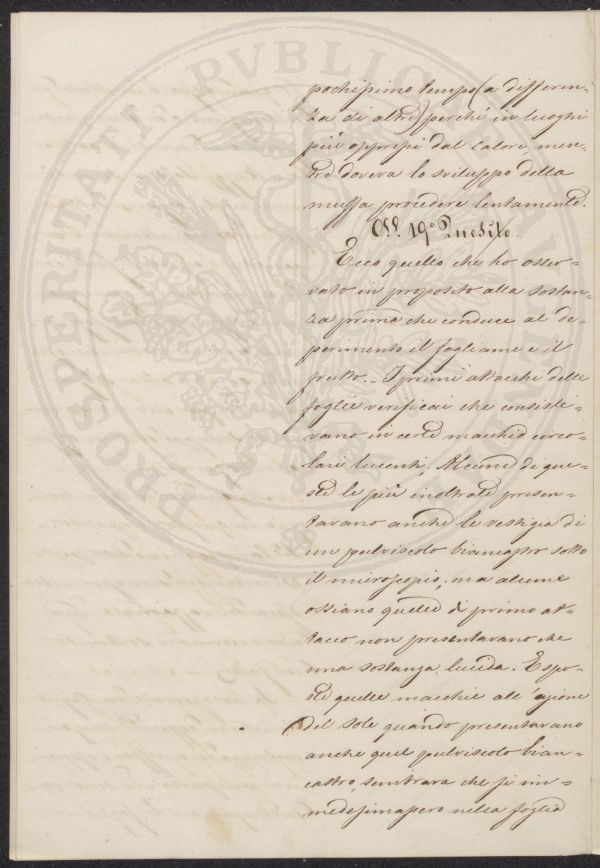 PROSPERITATI PVBLICAE AV
pochissimo tempo (a differen-
za di altri) perchè in luoghi
più oppressi dal calore, men-
tre doveva lo sviluppo della
muffa procedere lentamente.
Oss. 19° Quesito.
Ecco quello che ho osser-
vato in proposito alla sostan-
za prima che conduce al de-
perimento il fogliame e il
frutto. - I primi attacchi delle
foglie verificai che consiste-
vano in certe macchie circo-
lari lucenti. Alcune di que-
ste le più inoltrate presen-
tavano anche le vestigia di
un pulviscolo biancastro sotto
il microscopio; ma alcune
ossiano quelle di primo at-
tacco non presentavano che
una sostanza lucida. Espo-
ste quelle macchie all'azione
del sole quando presentavano
anche quel pulviscolo bian-
castro, sembrava che si im-
medesimassero nella foglia